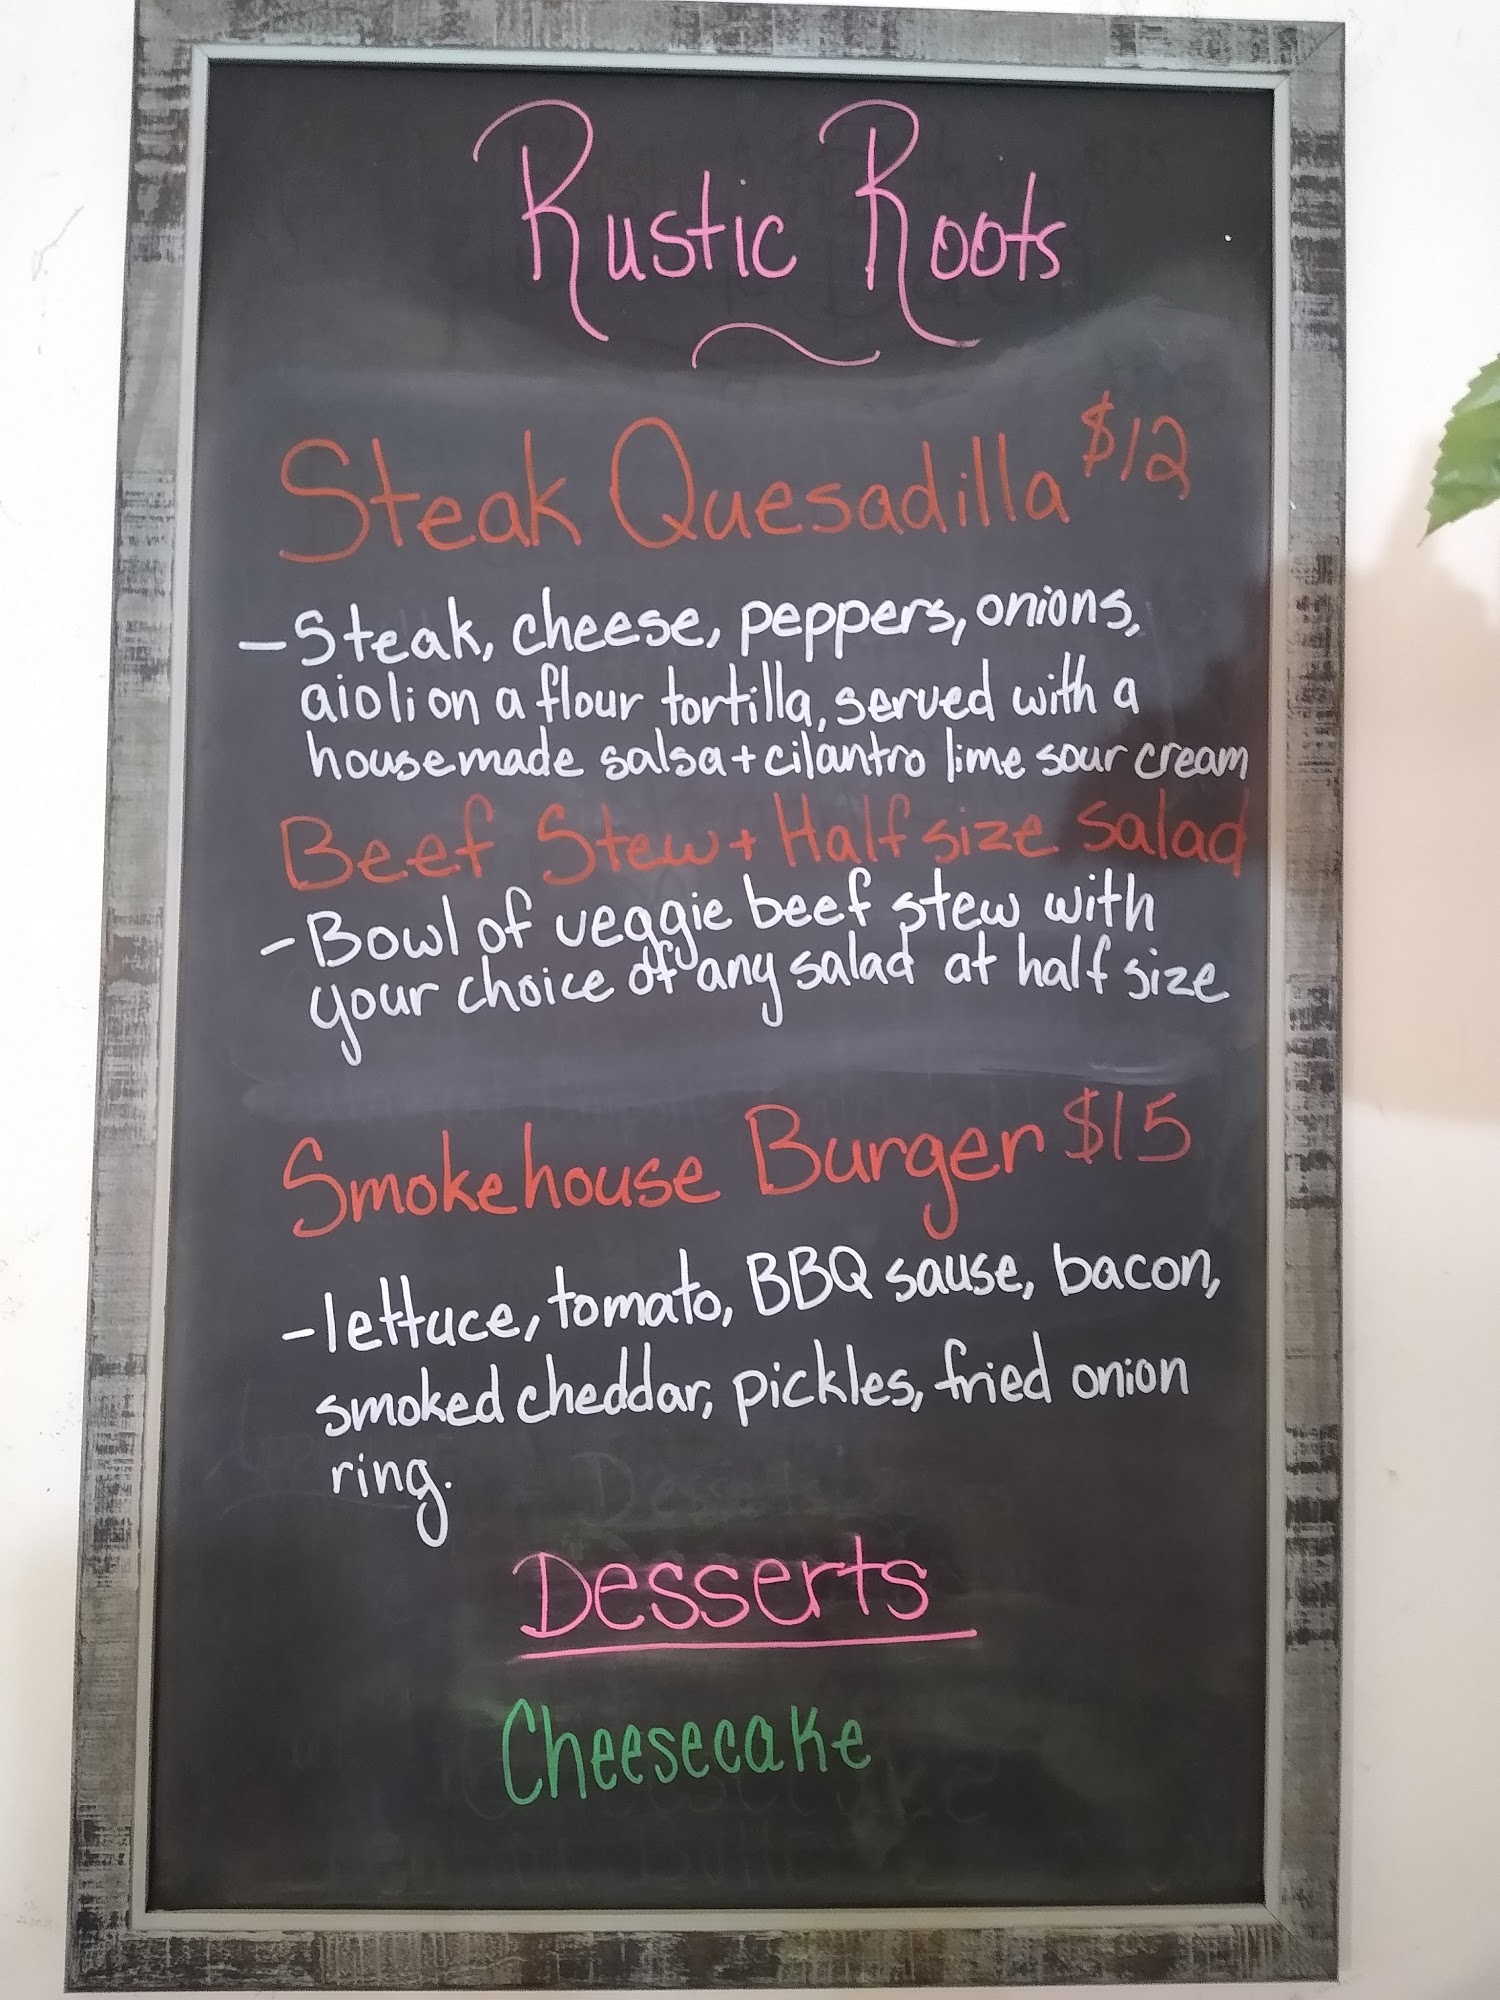 Rustic Roots
Steak Quesadilla $12
- Steak, cheese, peppers, onions,
aioli on a flour tortilla, served with a
housemade salsa + cilantro lime sour cream
Beef Stew + Half size Salad
- Bowl of veggie beef stew with
your choice of any salad at half size
Smokehouse Burger $15
- lettuce, tomato, BBQ sause, bacon,
smoked cheddar, pickles, fried onion
ring.
Desserts
Cheesecake